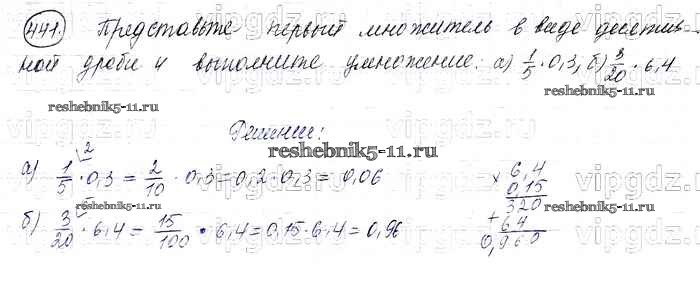 441. Представьте первый множитель в виде десятич-
ной дроби и выполните умножение: а) 1/5 · 0,3, б) 3/20 · 6,4
reshebnik5-11.ru reshebnik5-11.ru
Решение:
reshebnik5-11.ru
а) 1/5 \2 · 0,3 = 2/10 · 0,3 = 0,2 · 0,3 = 0,06
б) 3/20 \5 · 6,4 = 15/100 · 6,4 = 0,15 · 6,4 = 0,96
× 6,4
0,15
320
+ 64
0,960
vipgdz.ru vipgdz.ru vipgdz.ru